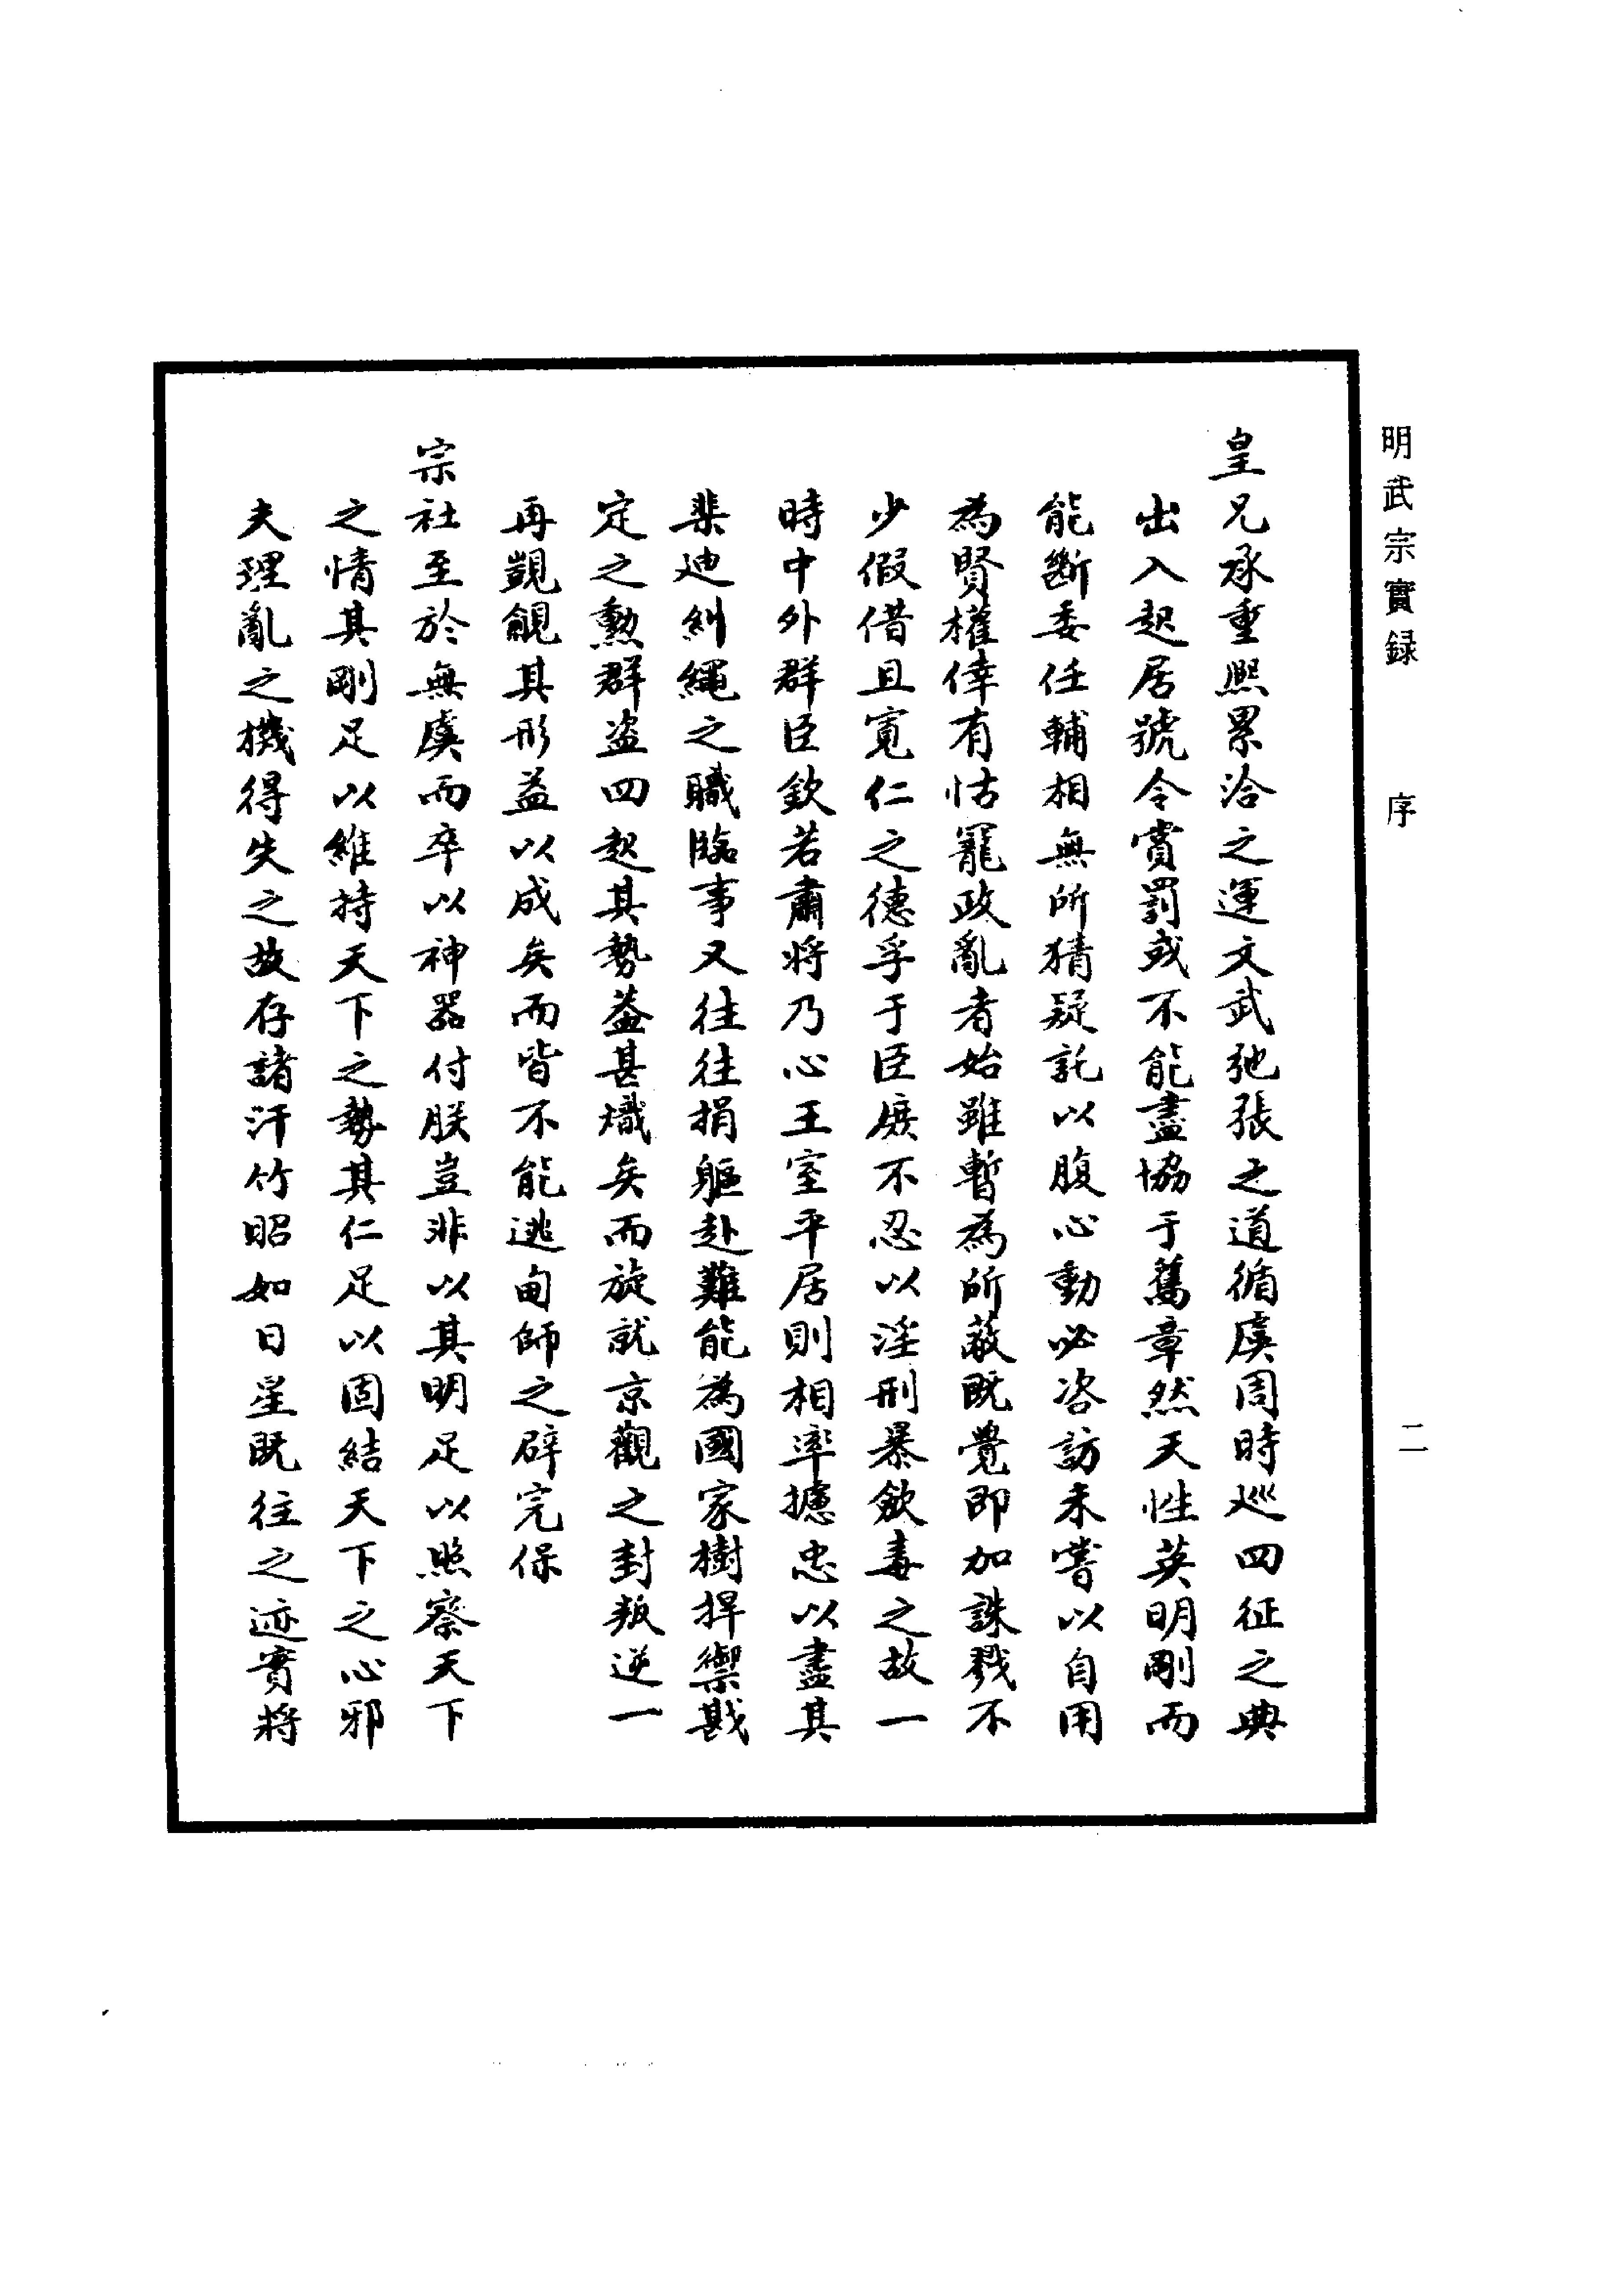 明武宗實録 序 二
皇兄承重熙累洽之運文武弛張之道循虞周時巡四征之典
出入起居號令賞罰或不能盡協于舊章然天性英明剛而
能斷委任輔相無所猜疑託以腹心動必咨訪未嘗以自用
為賢權倖有怙寵政亂者始雖暫為所蔽既覺即加誅戮不
少假借且寬仁之德孚于臣庶不忍以淫刑暴斂毒之故一
時中外群臣欽若肅將乃心王室平居則相率攄忠以盡其
棐迪糾繩之職臨事又往往捐軀赴難能為國家樹捍禦戡
定之勲群盜四起其勢益甚熾矣而旋就京觀之封叛逆一
再覬覦其形益以成矣而皆不能逃甸師之辟完保
宗社至於無虞而卒以神器付朕豈非以其明足以照察天下
之情其剛足以維持天下之勢其仁足以固結天下之心邪
夫理亂之機得失之故存諸汗竹昭如日星既往之迹實將